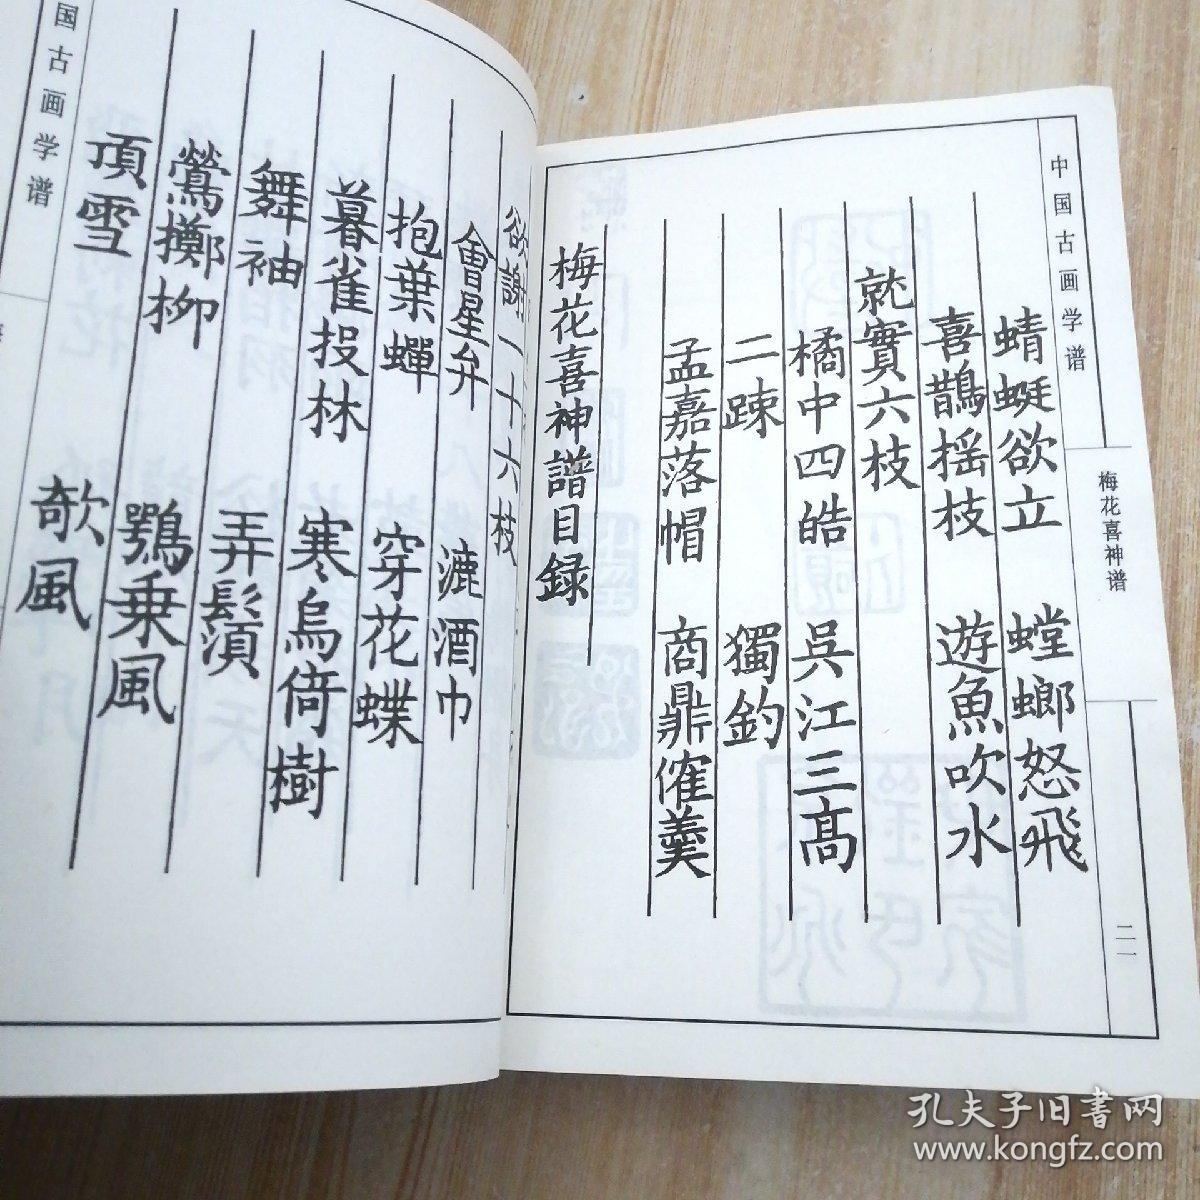 中国古画学谱
梅花喜神谱
二一
蜻蜓欲立 螳螂怒飛
喜鵲揺枝 遊魚吹水
就實六枝
橘中四皓 吳江三髙
二踈 獨釣
孟嘉落帽 商鼎催羹
梅花喜神譜目録
欲謝一十六枝
會星弁 漉酒巾
抱葉蟬 穿花蝶
暮雀投林 寒烏倚樹
舞袖 弄鬚
鶯擲柳 鶚乗風
頂雪 欹風
国古画学谱
孔夫子旧书网
www.kongfz.com